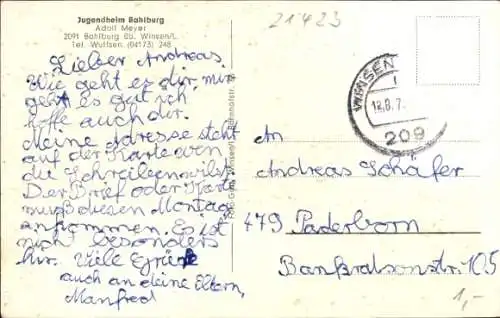 Jugendheim Bahlburg
Adolf Meyer
2091 Bahlburg üb. Winsen/L.
Tel. Wulfsen (04173) 248
21423
Lieber Andreas
Wie geht es dir, mir
geht es gut ich
hoffe auch dir.
Meine Adresse steht
auf der Karte wen
du Schreiben wilst
Der Brief oder Karte
muß diesen Montag
ankommen. Es ist
nich besonders
hir. Viele Grüße
auch an deine Eltern,
Manfred
WINSEN
18.8.7
209
An
Andreas Schäfer
479 Paderborn
105
1,-